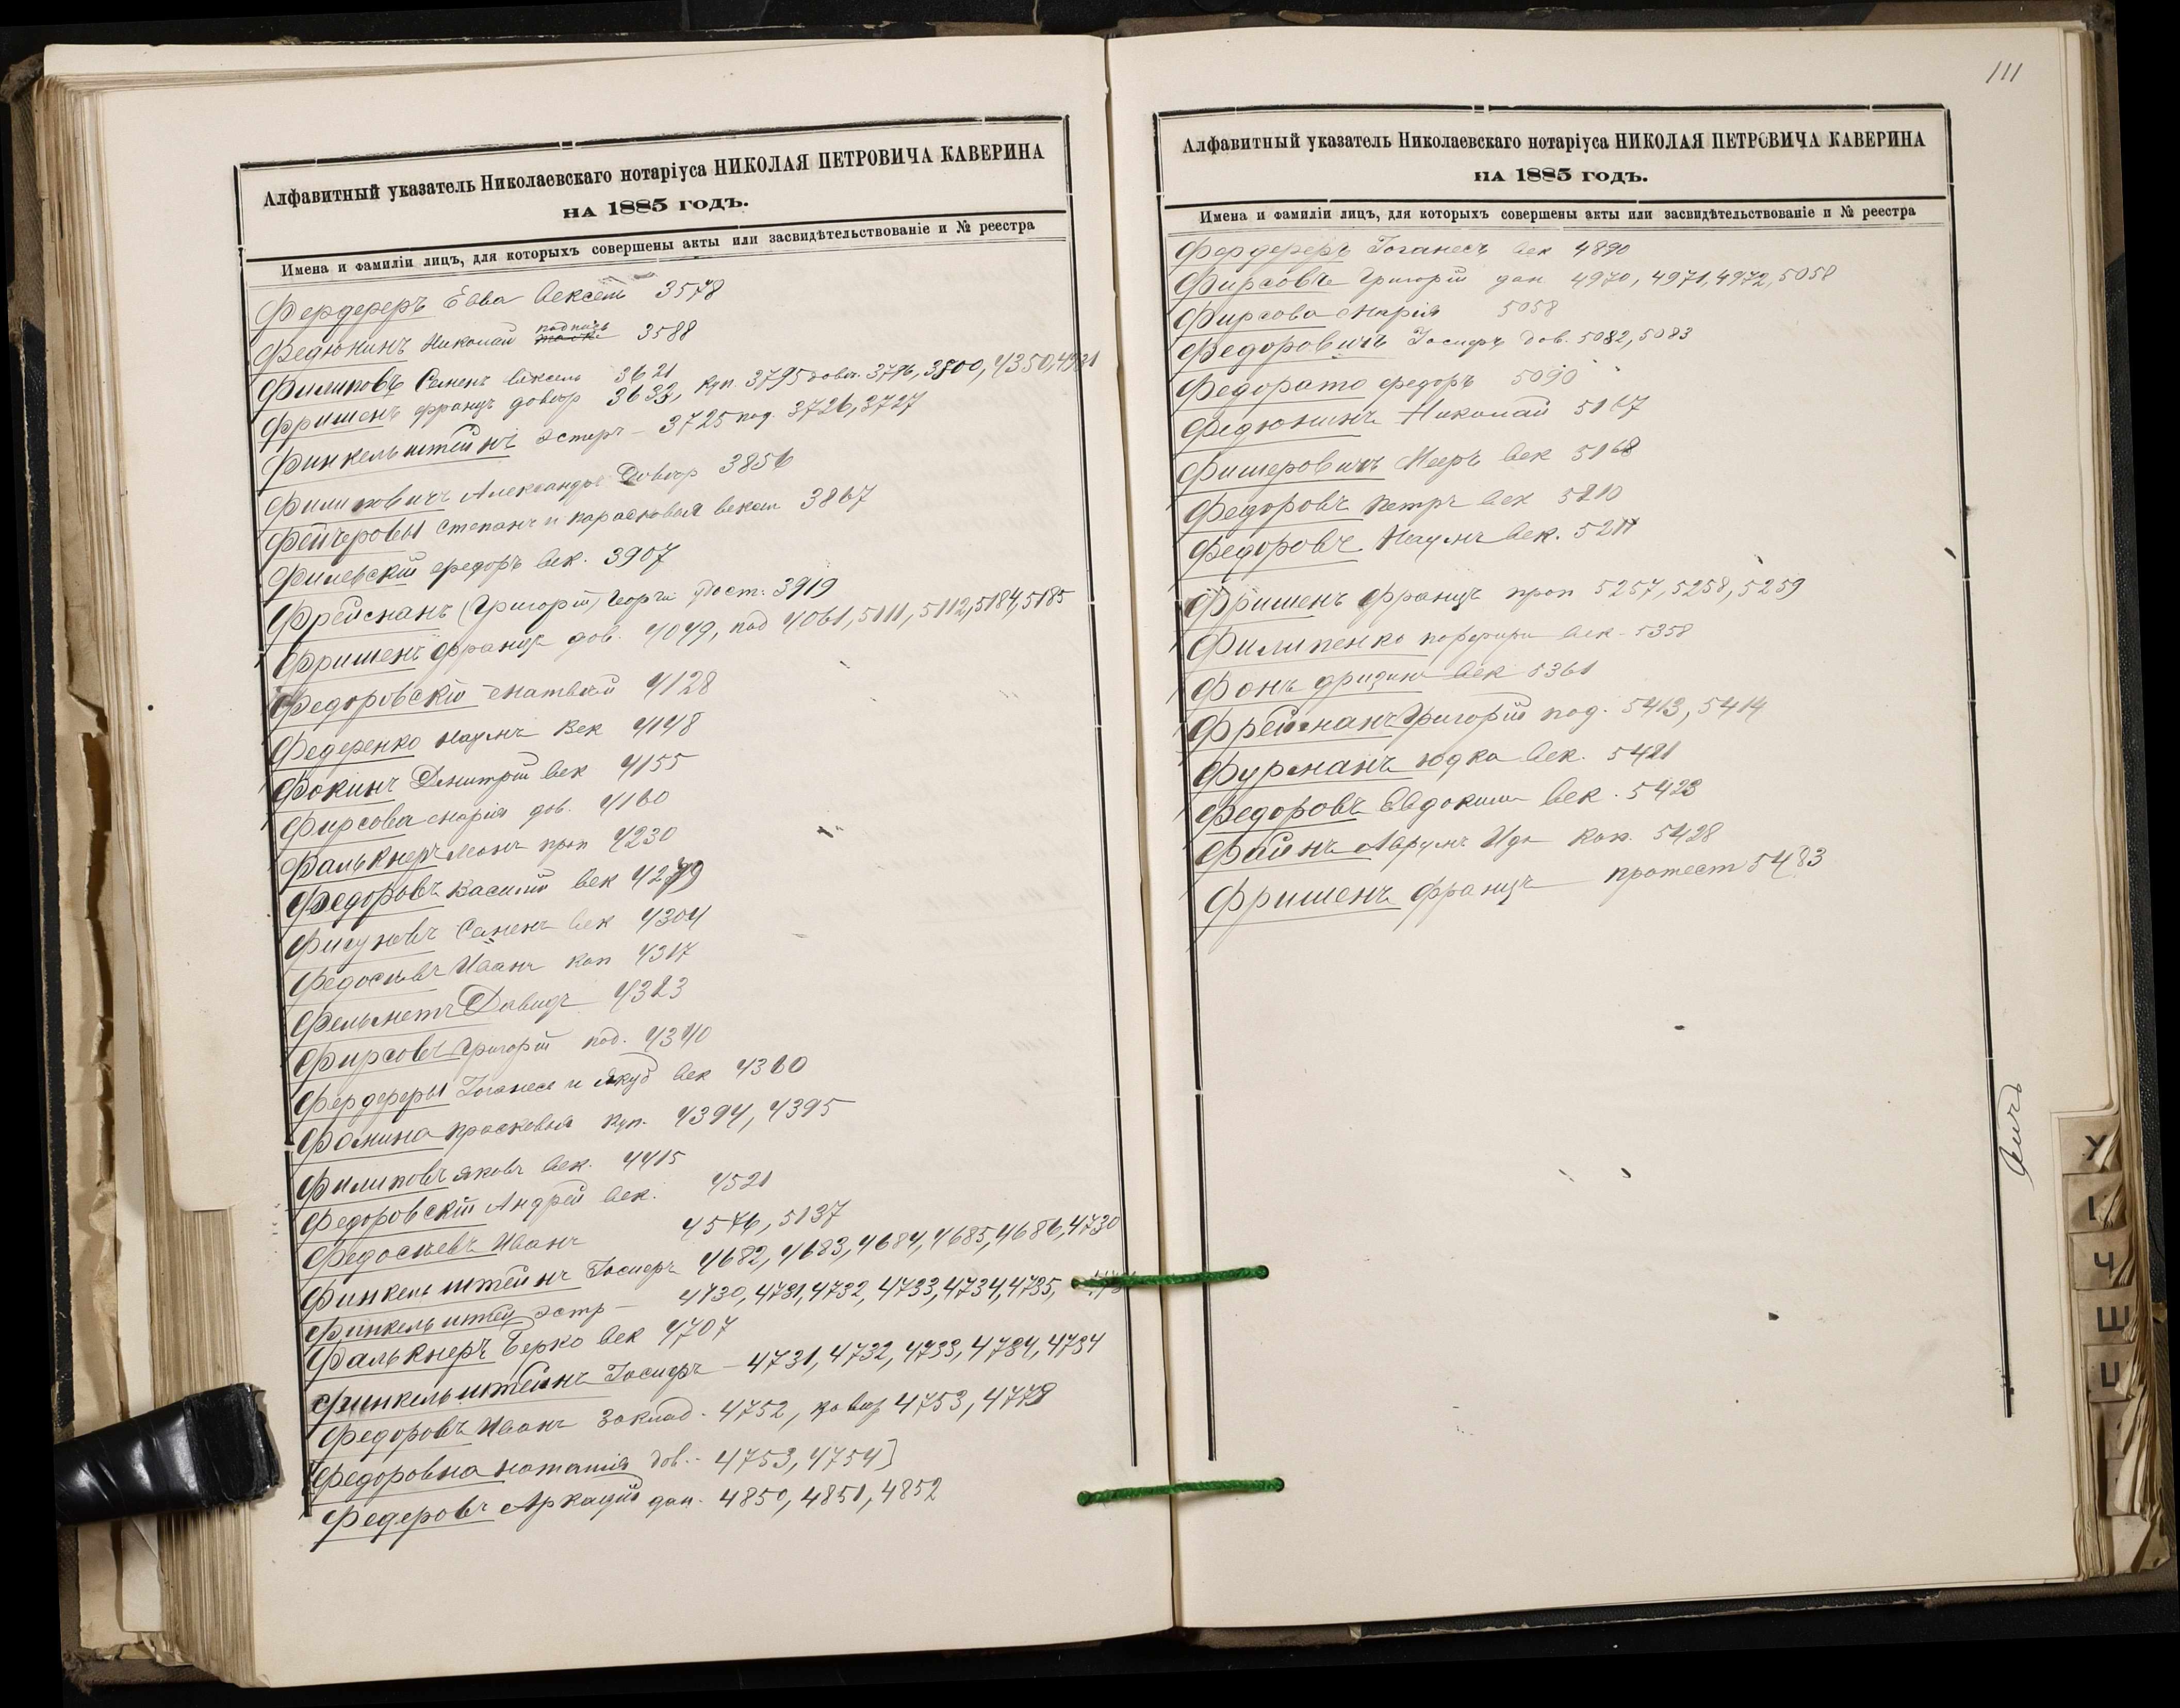 Алфавитный указатель Николаевскаго нотаріуса НИКОЛАЯ ПЕТРОВИЧА КАВЕРИНА
НА 1885 ГОДЪ.
Имена и фамиліи лицъ, для которыхъ совершены акты или засвидѣтельствованіе и № реестра
Фердереръ Ева вексель 3578
Федюнинъ Николай подпись 3588
Филиповъ Семенъ вексель 3621
Фришенъ Францъ довѣр 3633, куп. 3795 довѣр. 3796, 3800, 4350, 4921
Финкельштейнъ Эстеръ - 3725 под. 3726, 3727
Филиповичъ Александръ Довѣр 3856
Фейчеровы Степанъ и Парасковья вексел 3867
Филевскій Федоръ век. 3907
Фрейманъ (Григорій) Георгій дост. 3919
Фришенъ Францъ дов. 4049, под 4061, 5111, 5112, 5184, 5185
Федоровскій Матвѣй 4128
Федеренко Наумъ Век 4148
Фокинъ Дмитрій век 4155
Фирсова Марія дов. 4160
Фалькнеръ Леонъ проп 4230
Федоровъ Василій век
Фигуновъ Семенъ век 4304
Федосѣевъ Иванъ коп 4317
Фельметъ Давидъ 4323
Фирсовъ Григорій под. 4340
Фердереры Іоганесъ и Якуб век 4360
Фомина Прасковья куп. 4394, 4395
Филиповъ Яковъ век. 4415
Федоровскій Андрей век. 4521
Федосѣевъ Иванъ 4576, 5137
Финкельштейнъ Іосифъ 4682, 4683, 4684, 4685, 4686, 4730
Финкельштей Эстр - 4730, 4731, 4732, 4733, 4734, 4735,
Фалькнеръ Берко век 4707
Финкельштейнъ Іосифъ - 4731, 4732, 4733, 4734, 4734
Федоровъ Иванъ Заклад. 4752, 4753, 4779
Федоровна Наталія дов. - 4753, 4754]
Федеровъ Аркадій дан. 4850, 4851, 4852
111
Алфавитный указатель Николаевскаго нотаріуса НИКОЛАЯ ПЕТРОВИЧА КАВЕРИНА
НА 1885 ГОДЪ.
Имена и фамиліи лицъ, для которыхъ совершены акты или засвидѣтельствованіе и № реестра
Фердереръ Іоганесъ век 4890
Фирсовъ Григорій дан 4970, 4971, 4972, 5058
Фирсова Марія 5058
Федоровичъ Іосифъ дов. 5082, 5083
Федорато Федоръ 5090
Федюнинъ Николай 5167
Фишеровичъ Мееръ век 5168
Федоровъ Петръ век 5210
Федоровъ Наумъ век. 5211
Фришенъ Францъ проп 5257, 5258, 5259
Филипенко Порфири век - 5358
Фонъ Дризин век 5361
Фрейманъ Григорій под. 5413, 5414
Фурманъ Юдка век. 5421
Федоровъ Евдоким век. 5423
Файнъ Аврумъ Иде Коп. 5428
Фришенъ Францъ протест 5483
У
Ч
Ш